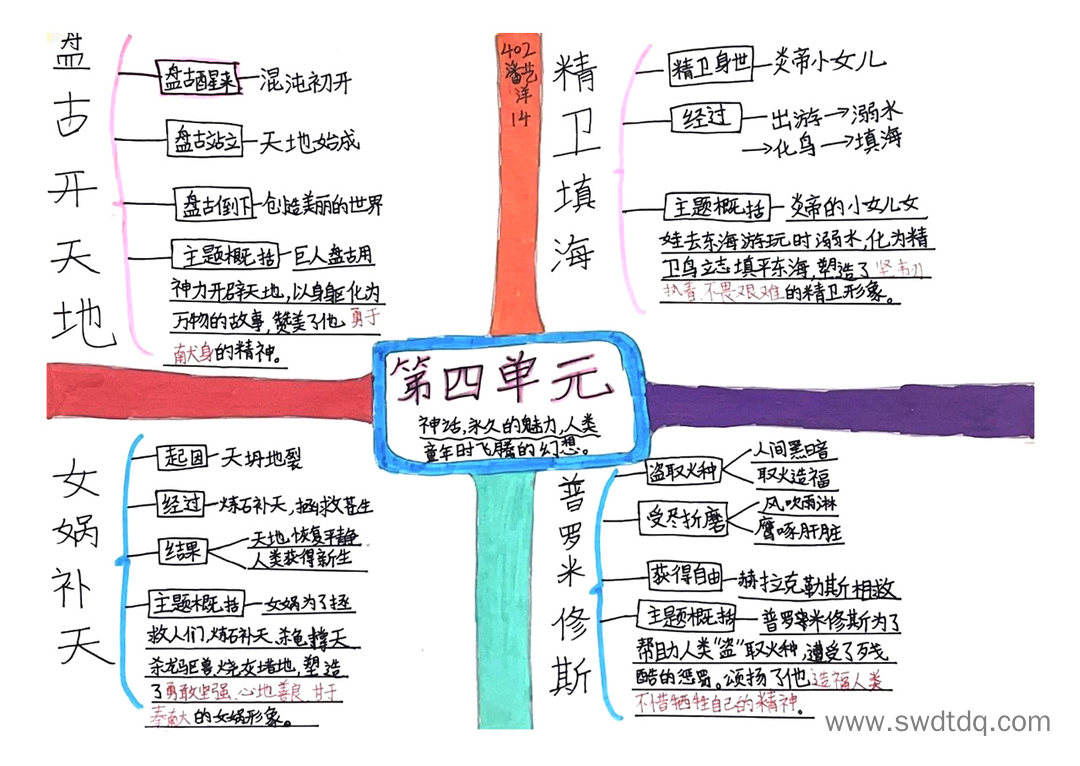 盘古开天地
盘古醒来
混沌初开
盘古站立
天地始成
盘古倒下
创造美丽的世界
主题概括
巨人盘古用
神力开辟天地，以身躯化为
万物的故事，赞美了他勇于
献身的精神。
402
潘艺
洋
14
精卫填海
精卫身世
炎帝小女儿
经过
出游→溺水
→化鸟→填海
主题概括
炎帝的小女儿女
娃去东海游玩时溺水，化为精
卫鸟立志填平东海，塑造了坚韧
执着、不畏艰难的精卫形象。
第四单元
神话，永久的魅力，人类
童年时飞腾的幻想。
女娲补天
起因
天坍地裂
经过
炼石补天，拯救苍生
结果
天地恢复平静
人类获得新生
主题概括
女娲为了拯
救人们，炼石补天、杀龟撑天
塑造
了勇敢坚强、心地善良、甘于
奉献的女娲形象。
普罗米修斯
盗取火种
人间黑暗
取火造福
受尽折磨
风吹雨淋
鹰啄肝脏
获得自由
赫拉克勒斯相救
主题概括
普罗米修斯为了
帮助人类“盗”取火种，遭受了残
酷的惩罚。颂扬了他造福人类
不惜牺牲自己的精神。
www.swdtdq.com